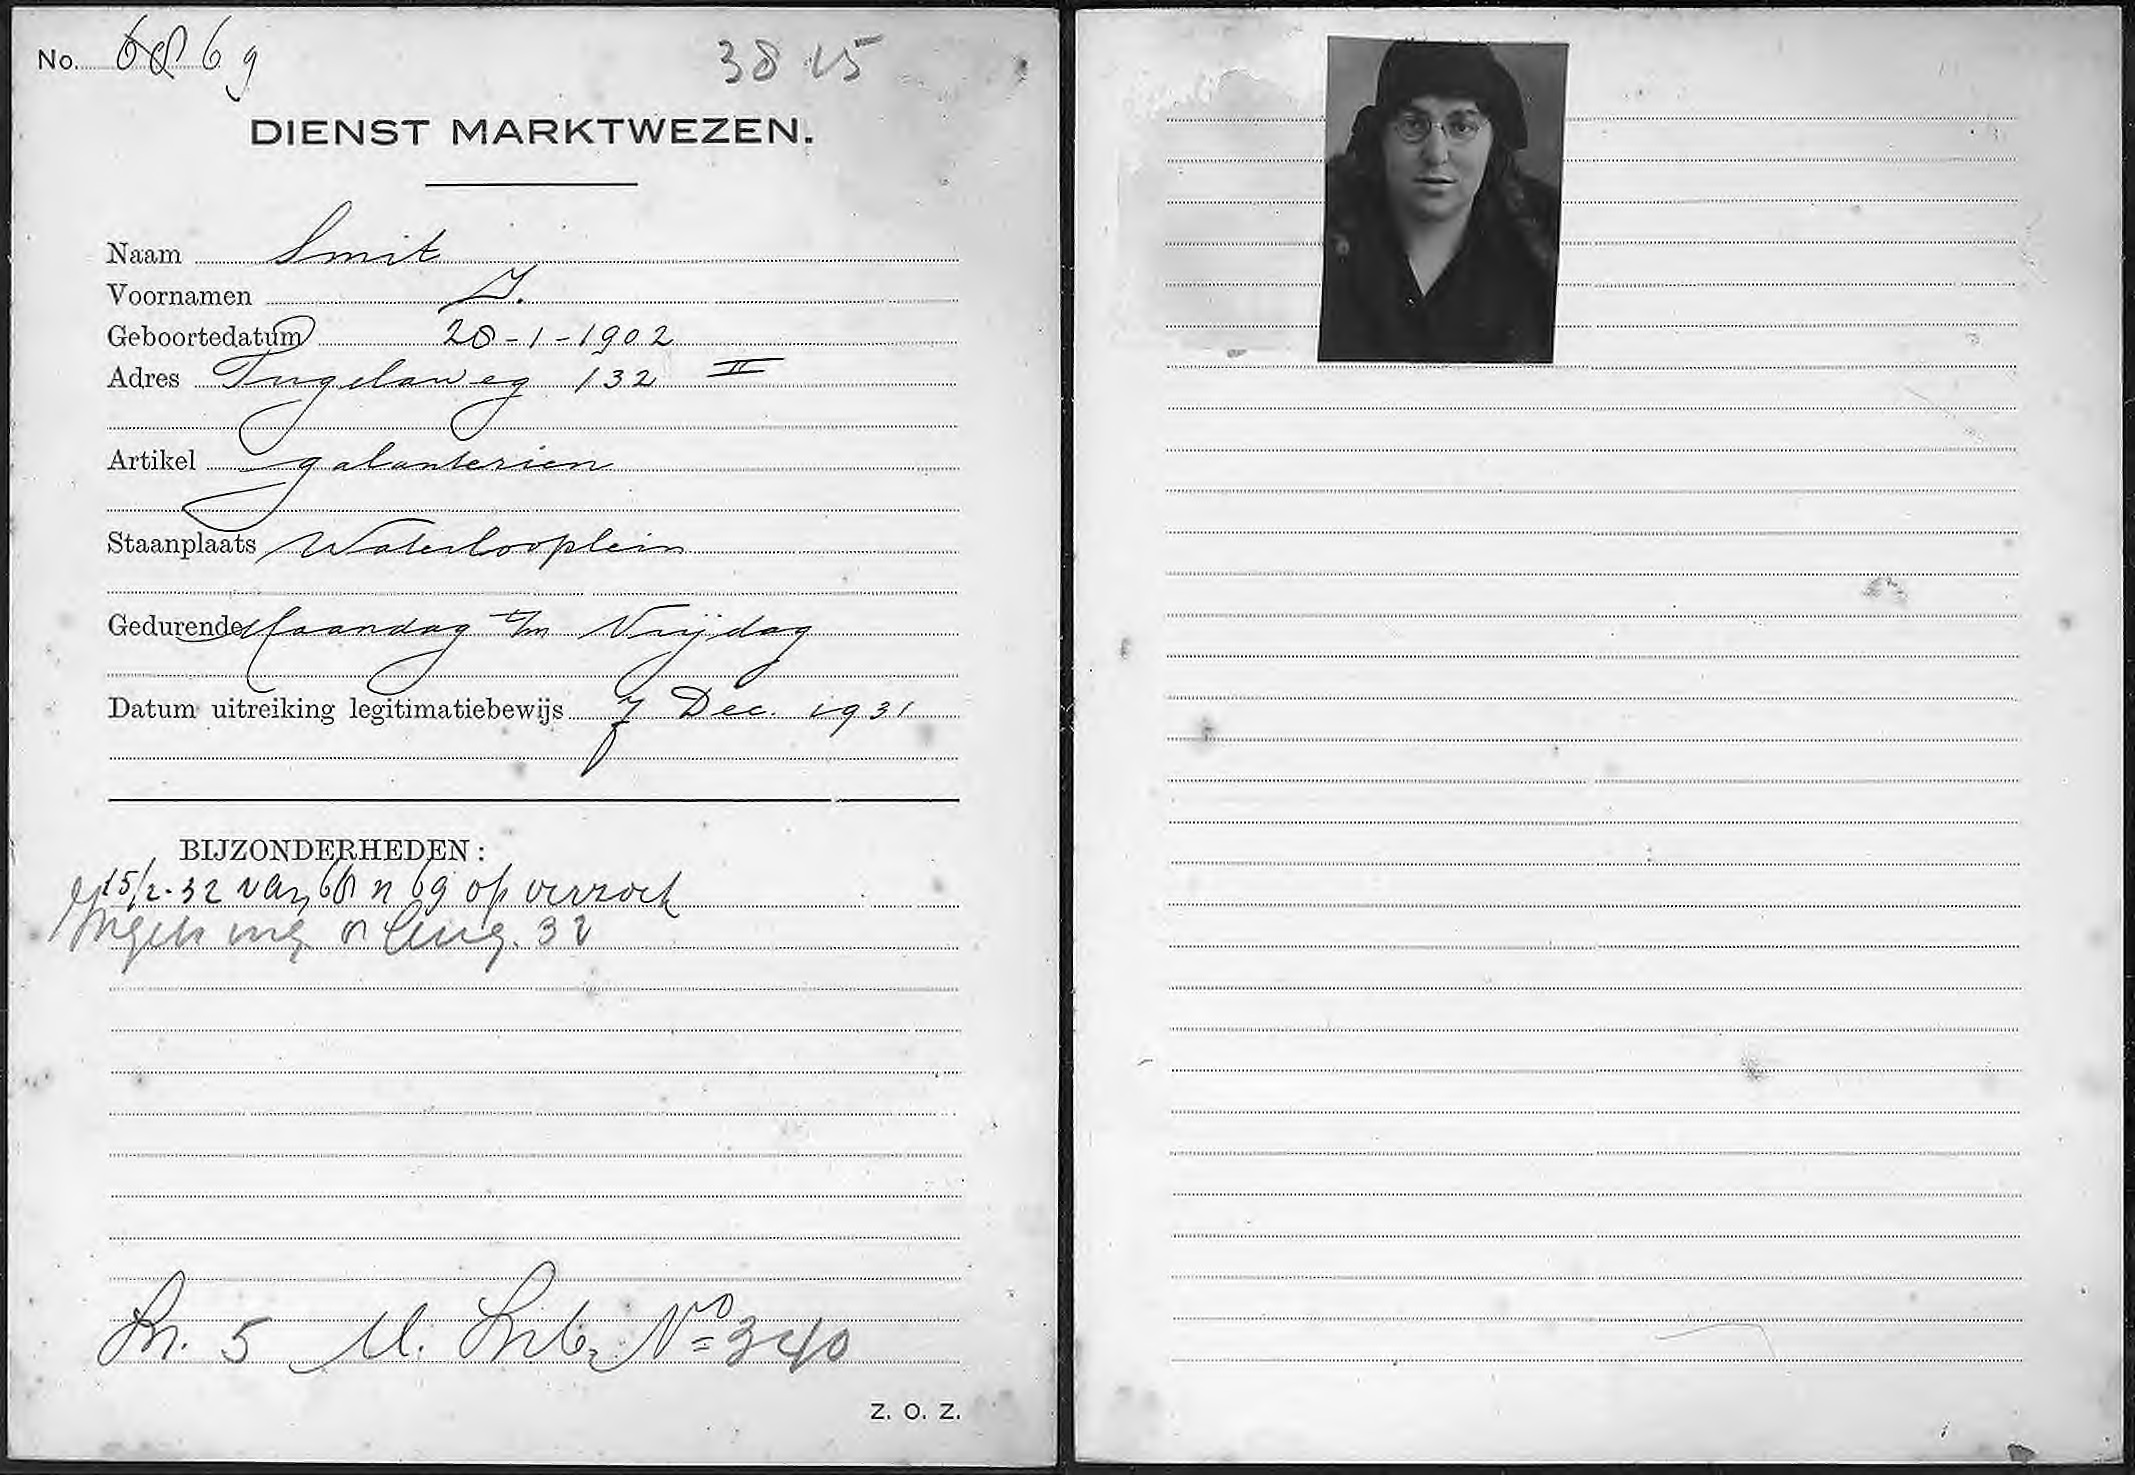 No. 68 69
38 15
DIENST MARKTWEZEN.
Naam Smit
Voornamen J.
Geboortedatum 28-1-1902
Adres Tugelaweg 132 II
Artikel galanterien
Staanplaats Waterlooplein
Gedurende Maandag t/m Vrijdag
Datum uitreiking legitimatiebewijs 7 Dec. 1931
BIJZONDERHEDEN:
15/2-32 van 68 n 69 op verzoek
Ingetr. Aug. 32
5 M. No 340
Z. O. Z.